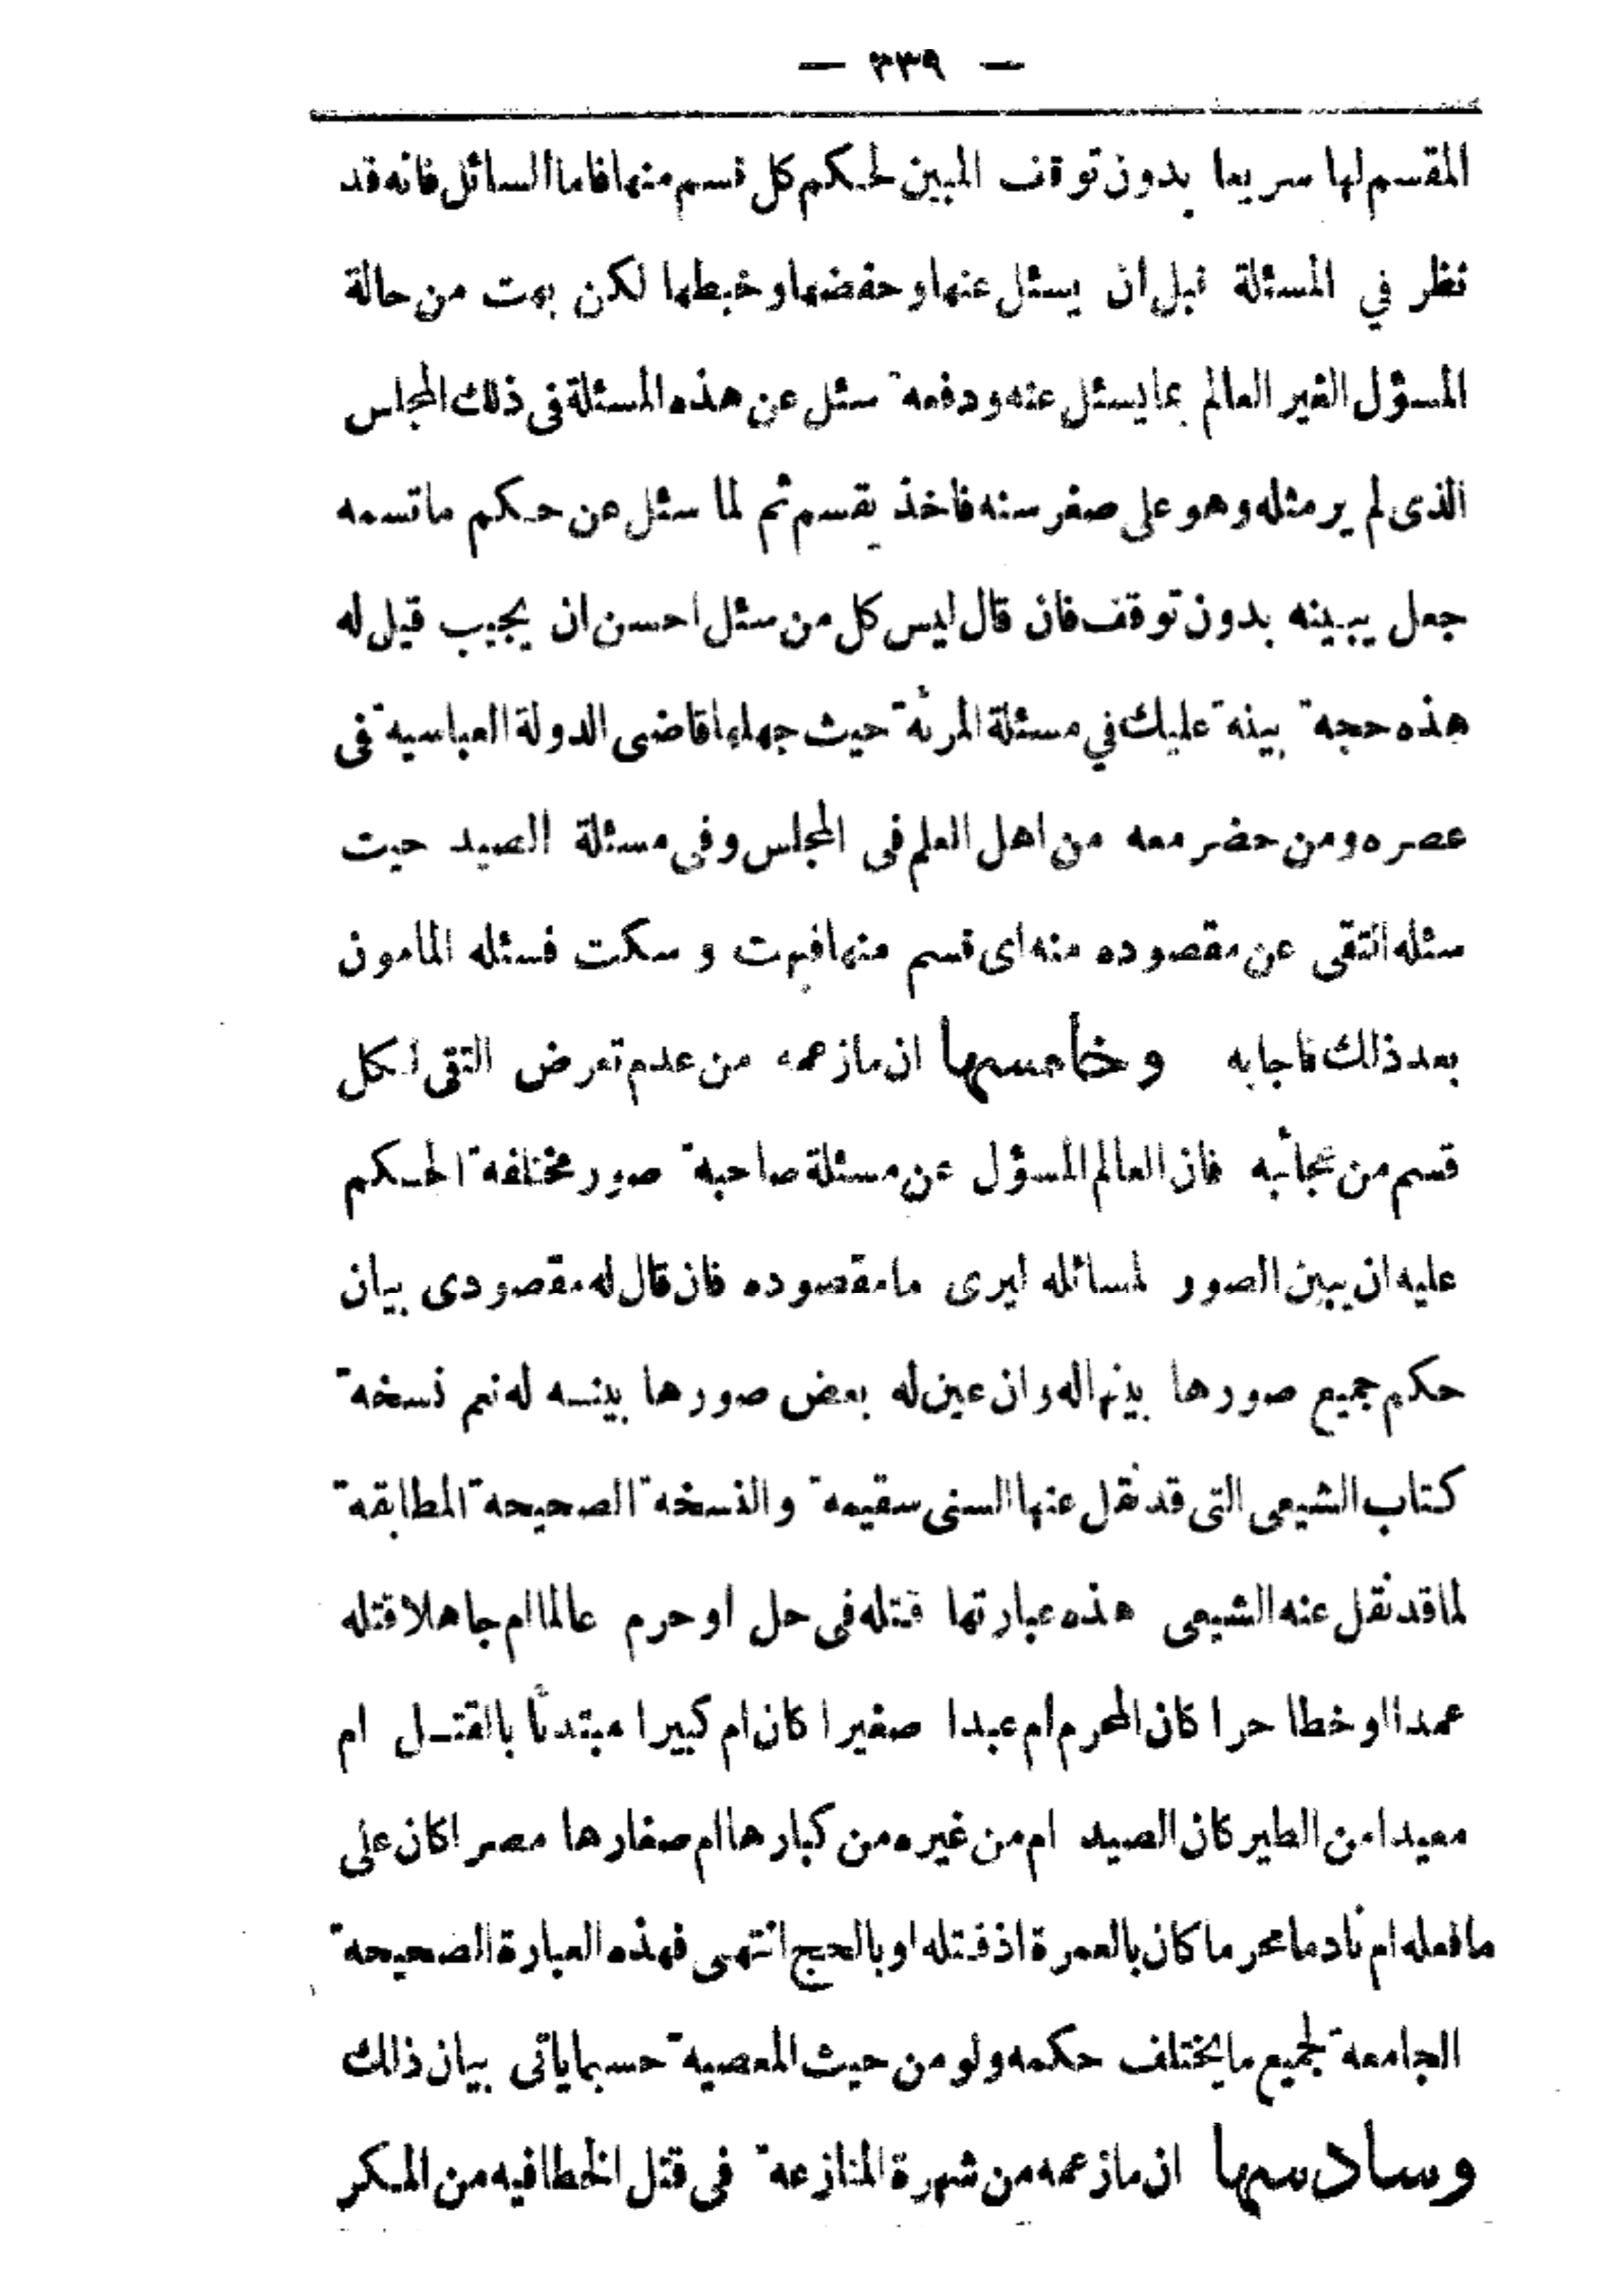 — ٣٣٩ —
المقسم لها سريعا بدون توقف المبين لحكم كل قسم منها فاما السائل فانه قد
نظر في المسئلة قبل ان يسئل عنها وحفضها وخبطها لكن بهت من حالة
المسؤل الغير العالم بما يسئل عنه ودفعة سئل عن هذه المسئلة فى ذلك المجلس
الذى لم ير مثله وهو على صغر سنه فاخذ يقسم ثم لما سئل عن حكم ماقسمه
جعل يبينه بدون توقف فان قال ليس كل من سئل احسن ان يجيب قيل له
هذه حجة بينة عليك في مسئلة المرئة حيث جهلها قاضى الدولة العباسية فى
عصره ومن حضر معه من اهل العلم فى المجلس وفى مسئلة الصيد حيت
سئله التقى عن مقصوده منه اى قسم منها فبهت و سكت فسئله المامون
بعد ذلك فاجابه وخامسها ان مازعمه من عدم تعرض التقى لكل
قسم من عجائبه فان العالم المسؤل عن مسئلة صاحبة صور مختلفة الحكم
عليه ان يبين الصور لمسائله ليرى ما مقصوده فان قال له مقصودى بيان
حكم جميع صورها بينها له وان عين له بعض صورها بينه له نعم نسخة
كتاب الشيعى التى قد نقل عنها السنى سقيمة والنسخة الصحيحة المطابقة
لماقد نقل عنه الشيعى هذه عبارتها قتله فى حل او حرم عالما ام جاهلا قتله
عمدا او خطا حرا كان المحرم ام عبدا صغيرا كان ام كبيرا مبتدئا بالقتل ام
معيدا من الطير كان الصيد ام من غيره من كبارها ام صغارها مصرا كان على
مافعله ام نادما محرما كان بالعمرة اذ قتله او بالحج انتهى فهذه العبارة الصحيحة
الجامعة لجميع مايختلف حكمه ولو من حيث المعصية حسبما ياتى بيان ذلك
وسادسها ان مازعمه من شهرة المنازعة فى قتل الخطا فيه من المكر